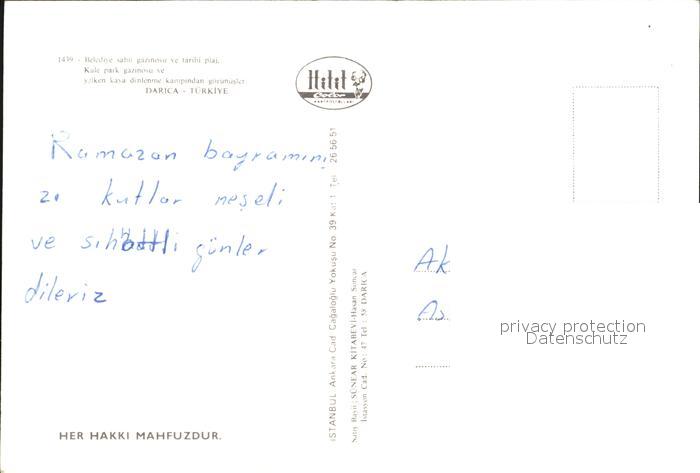 1439 - Belediye sahil gazinosu ve tarihi plaj,
Kule park gazinosu ve
yelken kaya dinlenme kampından görünüşler
DARICA - TÜRKİYE
Hitit
Color
KARTPOSTALLARI
Ramazan bayramını
zı kutlar neşeli
ve sıhhatli günler
dileriz
HER HAKKI MAHFUZDUR.
İSTANBUL Ankara Cad. Cağaloğlu Yokuşu No. 39 Kat 1 Tel : 26 56 51
Satış Bayii : SÜNEAR KİTABEVİ-Hasan Suncar
İstasyon Cad. No : 47 Tel : 58 DARICA
Ak
As
privacy protection
Datenschutz